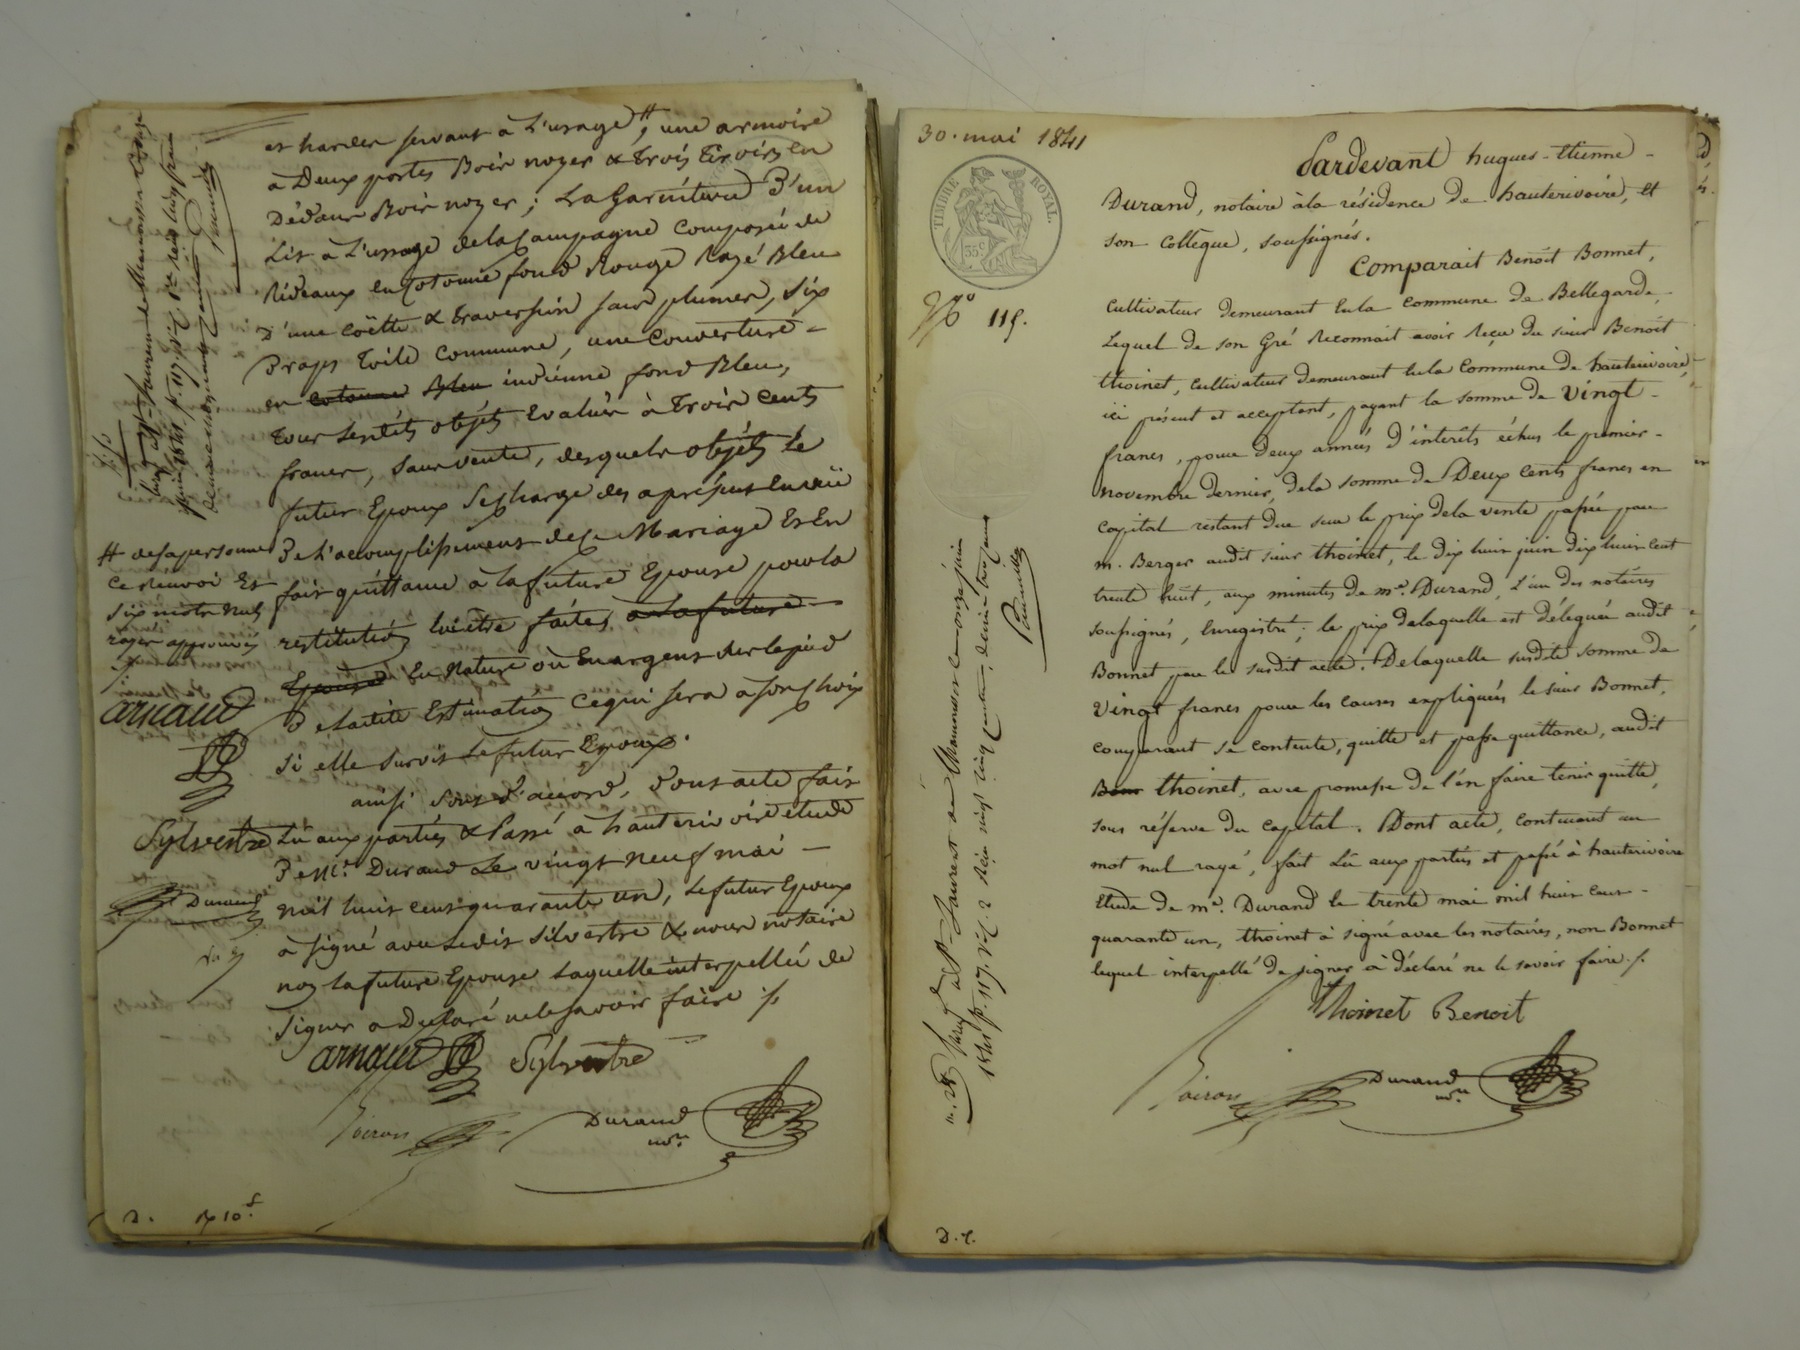 et hardes servant à L'usage #, une armoire
à Deux portes Bois noyer & trois tiroirs en
Dédans Bois noyer; La Garniture D'un
Lit à L'usage de la Campagne Composée de
Rideaux en Cotonne fond Rouge Rayé Bleu
D'une Coëtte & traversin sans plumes, six
Draps toile Commune, une Couverture -
en cotonne Bleu indienne fond Bleu,
tous lesdits objéts Evalués à trois cents
francs, sans vente, desquels objéts Le
futur Epoux se charge dès aprésent en vüe
De L'accomplissement de ce Mariage Et En
fait quittance à la future Epouse pour la
restitution lui être faite à la future -
Epouse En Nature ou En argent sur le pied
De ladite Estimation ce qui sera à son choix
si elle survit Le futur Epoux.
ainsi sont d'accord, Dont acte fait
Lu aux parties & Passé à hauterivoire etude
De Me. Durand Le vingt neuf mai -
mil huit cent quarante un, Le futur Epoux
à signé avec ledit silvestre & nous notaire
non la future Epouse Laquelle interpellée de
signer a Declaré ne le savoir faire ./.
# de sa personne
Ce renvoi Et
six mots nuls
rayés approuvés
arnaud
Sylvestre
Durand
arnaud Sylvestre
Coiron
Durand
nore
D. 10.
30. mai 1841
TIMBRE ROYAL.
35c
No 115.
Pardevant hugues-Etienne -
Durand, notaire à la résidence de hauterivoire, et
son Collègue, soussignés.
Comparait Benoit Bonnet,
Cultivateur demeurant en la Commune de Bellegarde,
Lequel de son Gré Reconnait avoir Reçu du sieur Benoit
thoinet, Cultivateur demeurant en la Commune de hauterivoire,
ici présent et acceptant, payant la somme de vingt -
francs, pour deux années d'interets échus le premier -
novembre dernier, de la somme de Deux cents francs en
Capital restant due sur le prix de la vente passée par
m. Berger audit sieur thoinet, le dix huit juin dix huit cent
trente huit, aux minutes de me. Durand, L'un des notaires
soussignés, Enregistré; le prix de laquelle est déleguée audit
Bonnet par le susdit acte. De laquelle susdite somme de
vingt francs pour les causes expliquées le sieur Bonnet,
comparant se contente, quitte et passe quittance, audit
Bonn thoinet, avec promesse de l'en faire tenir quitte,
sous réserve du capital. Dont acte, contenant un
mot nul rayé, fait Lu aux parties et passé à hauterivoire
Etude de me. Durand le trente mai mil huit cent -
quarante un, thoinet à signé avec les notaires, non Bonnet
lequel interpellé de signer à déclaré ne le savoir faire ./.
Thoinet Benoit
Coiron
Durand
nore
D. 2.